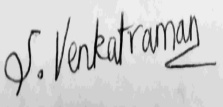 S. Venkatraman